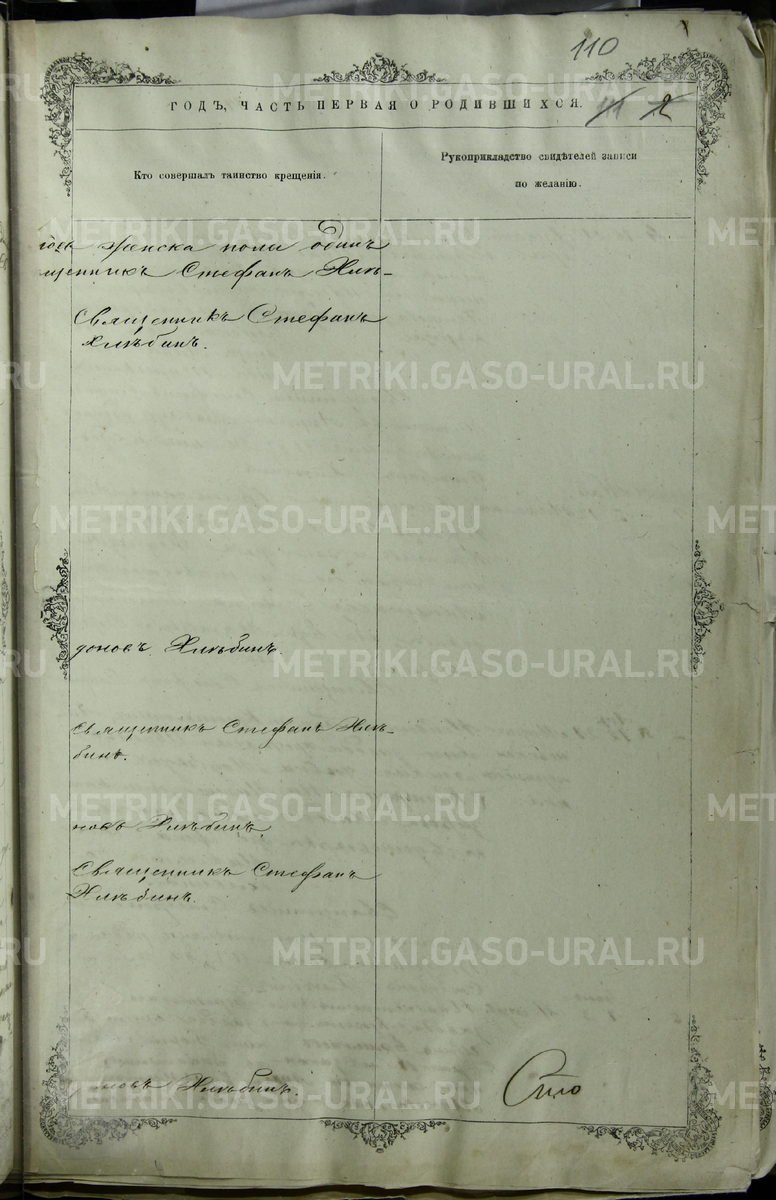 110
ГОДЪ, ЧАСТЬ ПЕРВАЯ О РОДИВШИХСЯ. 2
Кто совершалъ таинство крещенія.
Рукоприкладство свидѣтелей записи
по желанію.
женска пола одинъ
щенникъ Стефанъ Хлѣ-
Священникъ Стефанъ
Хлѣбинъ.
доновъ Хлѣбинъ.
Священникъ Стефанъ Хлѣ-
бинъ.
новъ Хлѣбинъ.
Священникъ Стефанъ
Хлѣбинъ.
новъ Хлѣбинъ.
Сто
METRIKI.GASO-URAL.RU